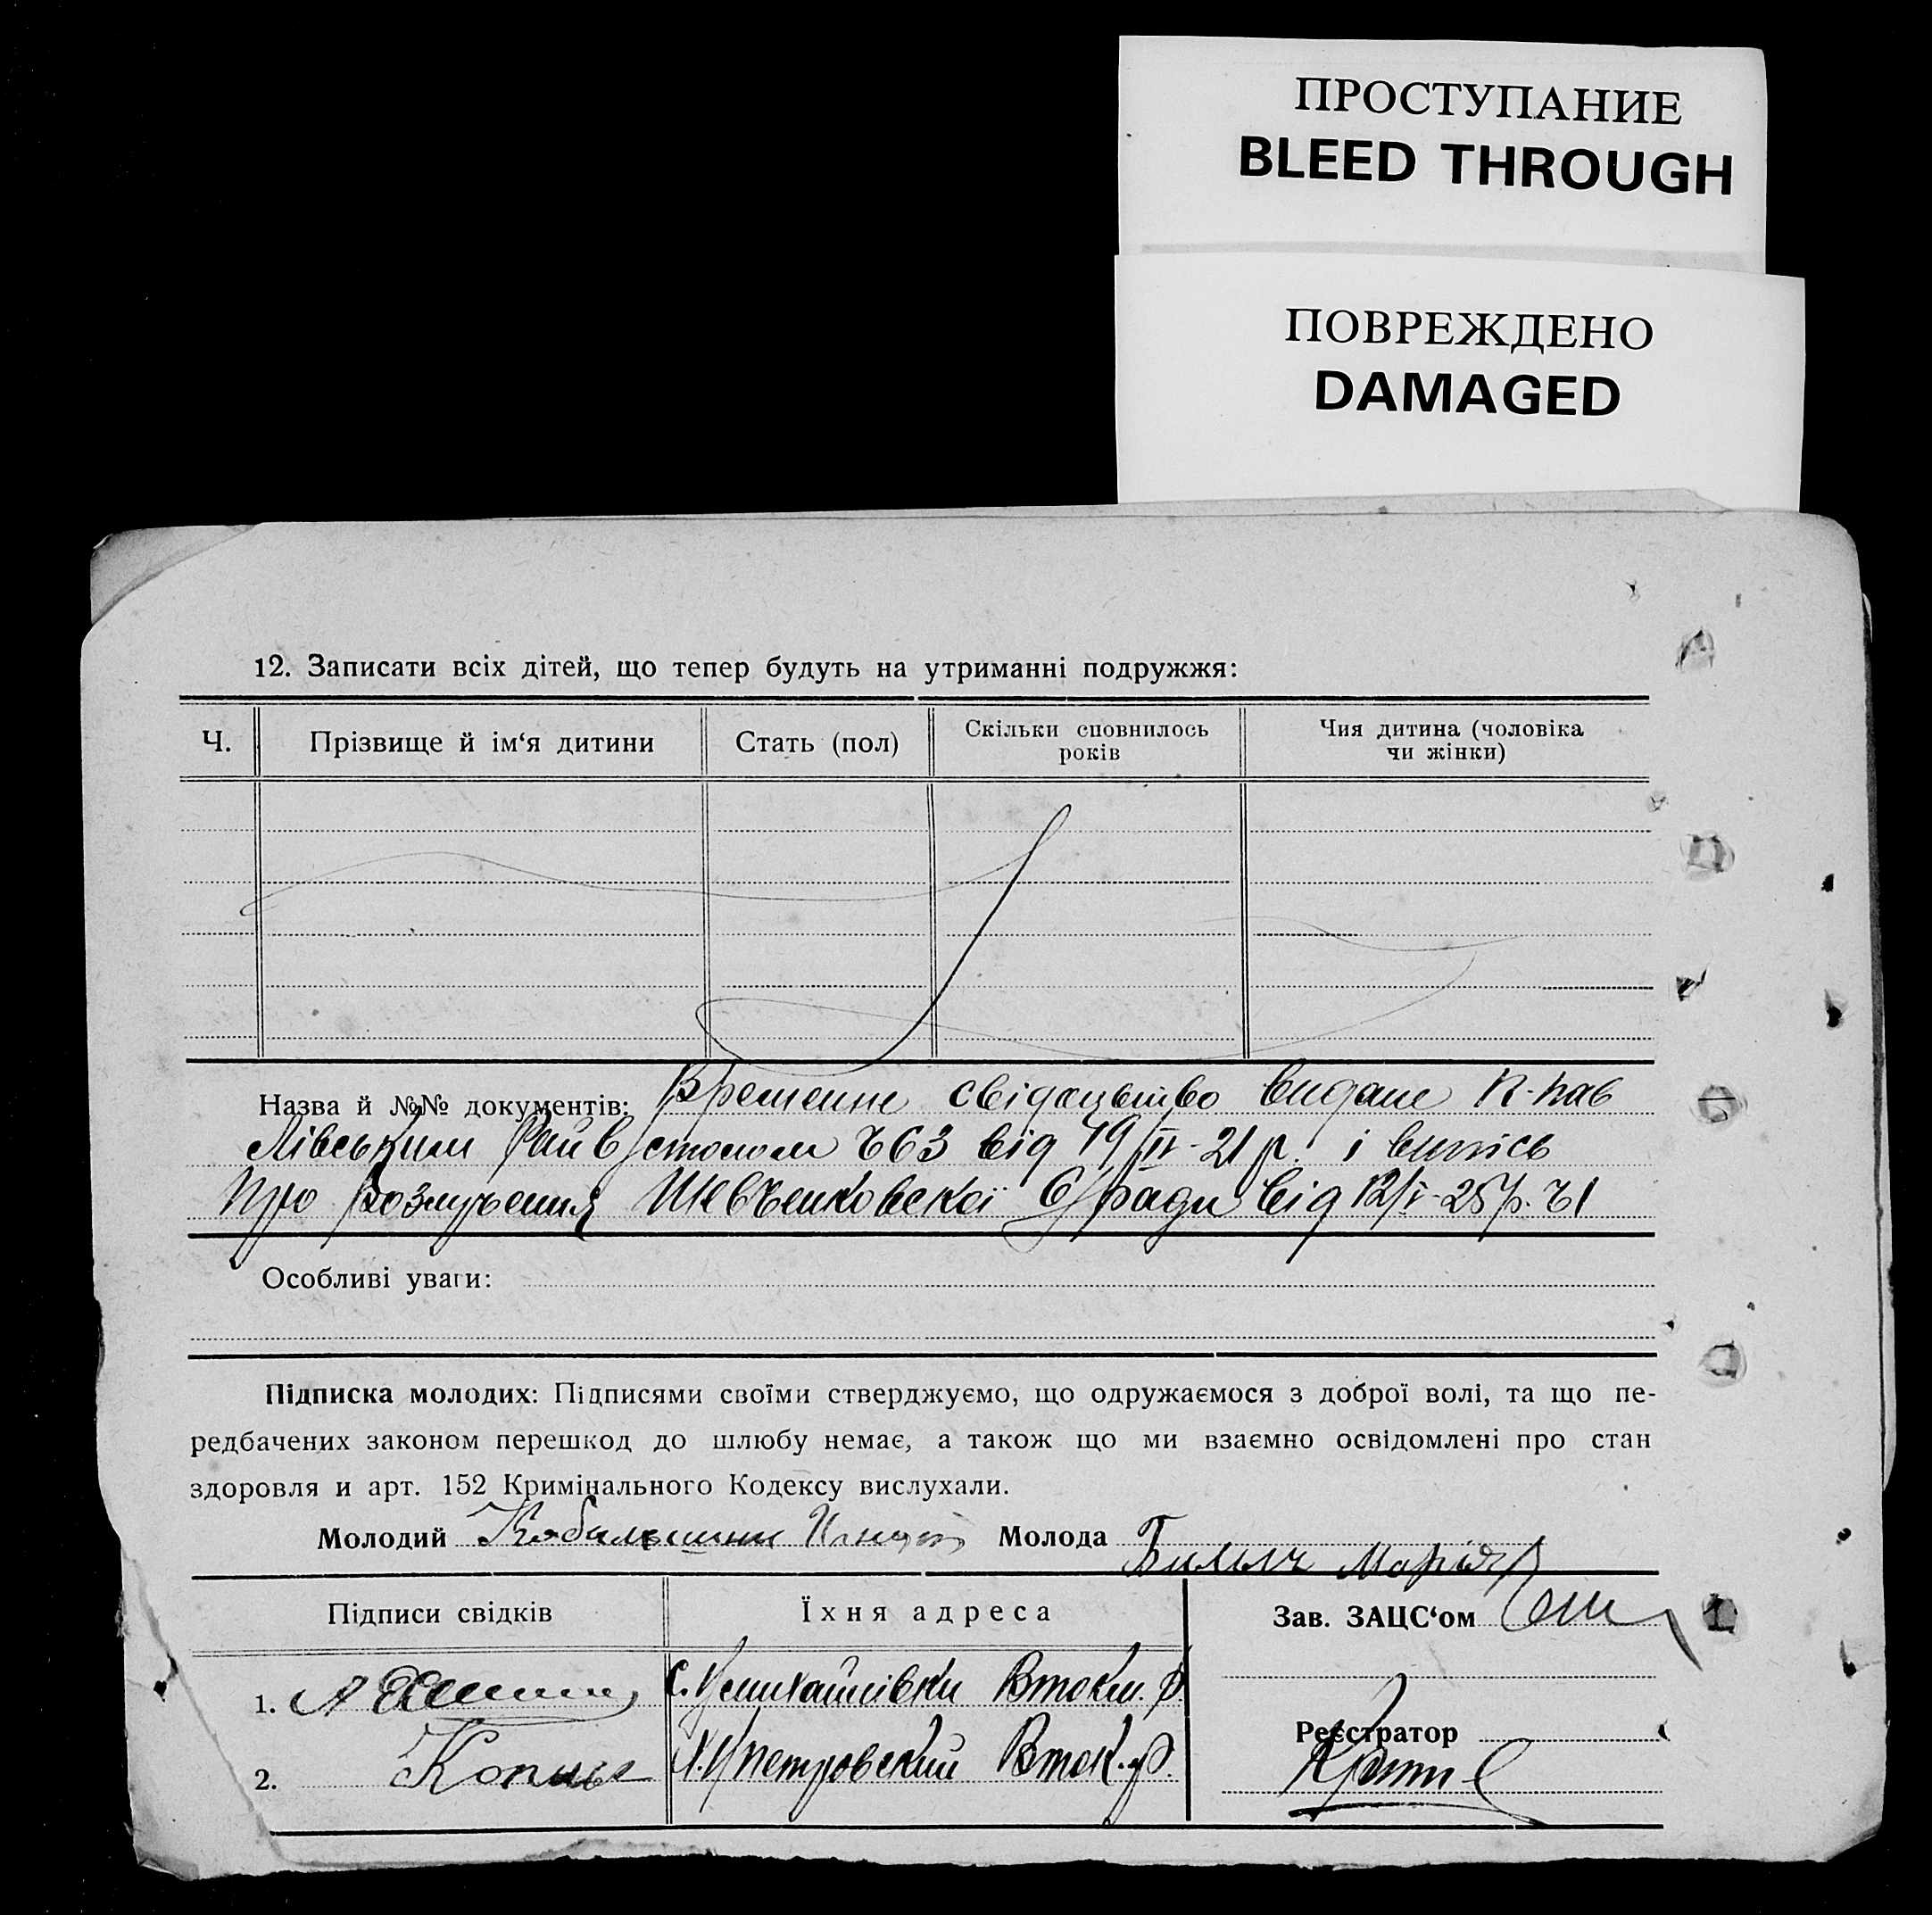 ПРОСТУПАНИЕ
BLEED THROUGH
ПОВРЕЖДЕНО
DAMAGED
12. Записати всіх дітей, що тепер будуть на утриманні подружжя:
Ч. Прізвище й ім‘я дитини Стать (пол) Скільки сповнилось років Чия дитина (чоловіка чи жінки)
Назва й №№ документів: Временне свідоцтво видане К-пав
лівським Рай в столом ч 63 від 19/IV-21 р. і витісь
про розлучення Шевченковскої С/ради від 12/I-25 р. ч 1
Особливі уваги:
Підписка молодих: Підписями своїми стверджуємо, що одружаємося з доброї волі, та що пе-
редбачених законом перешкод до шлюбу немає, а також що ми взаємно освідомлені про стан
здоровля и арт. 152 Кримінального Кодексу вислухали.
Молодий Молода Марія
Підписи свідків Їхня адреса Зав. ЗАЦС‘ом
1. с.
Реєстратор
2. Х. Петровский